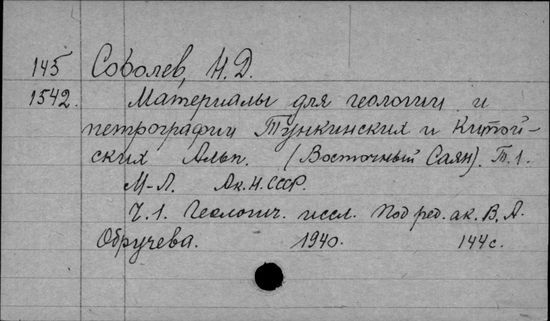 145 Соболев, Н.Д.
1542. Материалы для геологии и
петрографии Тункинских и Китой-
ских Альп. (Восточный Саян). Т.1.
М-Л. Ак.Н.СССР.
Ч.1. Геологич. иссл. Под ред. ак. В.А.
Обручева. 1940. 144с.